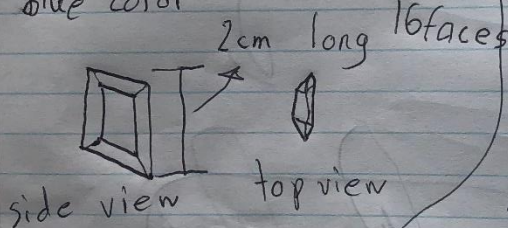 blue color
2cm long 16faces
side view top view